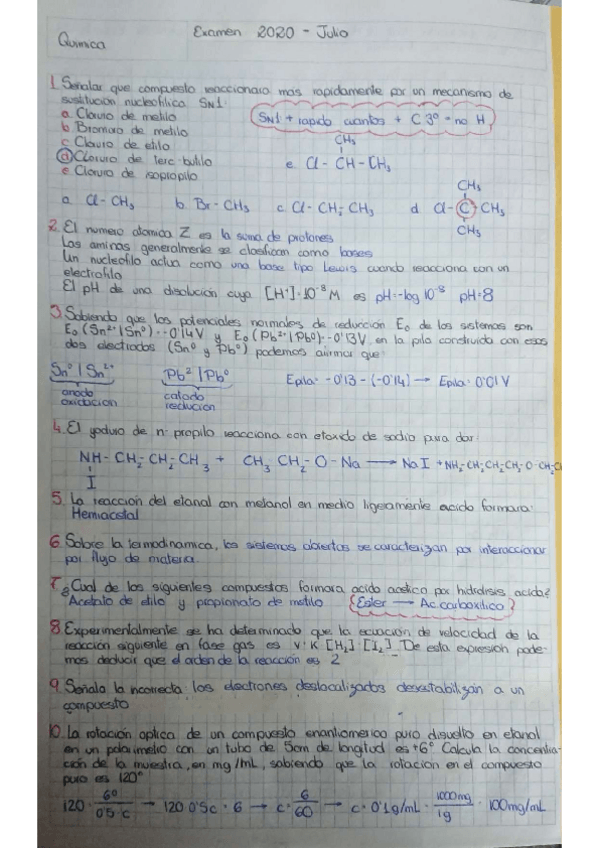 Química
Examen 2020 - Julio
1. Señalar que compuesto reaccionara mas rapidamente por un mecanismo de
sustitución nucleofilica SN1:
a. Cloruro de metilo
SN1 + rapido cuantos + C 3º = no H
b. Bromuro de metilo
c. Cloruro de etilo
d. Cloruro de terc-butilo
e. Cloruro de isopropilo
CH3
e. Cl - CH - CH3
a. Cl - CH3 b. Br - CH3 c. Cl - CH2 - CH3
CH3
d. Cl - C - CH3
CH3
2. El numero atomico Z es la suma de protones
Las aminas generalmente se clasifican como bases
Un nucleofilo actua como una base tipo Lewis cuando reacciona con un
electrofilo
El pH de una disolución cuya [H+] = 10^-8 M es pH = -log 10^-8 pH = 8
3. Sabiendo que los potenciales normales de reducción E0 de los sistemas son
E0 (Sn2+ | Sn0) = -0'14V y E0 (Pb2+ | Pb0) = -0'13V, en la pila construida con esos
dos electrodos (Sn0 y Pb0) podemos afirmar que:
Sn0 | Sn2+ Pb2 | Pb0 Epila = -0'13 - (-0'14) → Epila = 0'01V
anodo catodo
oxidacion reducion
4. El yoduro de n-propilo reacciona con etoxido de sodio para dar:
NH - CH2 - CH2 - CH3 + CH3 CH2 - O - Na → NaI + NH2-CH2CH2CH2-O-CH2-CH
I
5. La reaccion del etanal con metanol en medio ligeramente acido formara:
Hemiacetal
6. Sobre la termodinamica, los sistemas abiertos se caracterizan por interaccionar
por flujo de materia.
7. ¿Cual de los siguientes compuestos formara acido acetico por hidrolisis acida?
Acetato de etilo y propionato de metilo {Ester → Ac. carboxilico}
8. Experimentalmente se ha determinado que la ecuacion de velocidad de la
reacción siguiente en fase gas es v = K [H2] · [I2]. De esta expresion pode-
mos deducir que el orden de la reaccion es 2
9. Señala la incorrecta: los electrones deslocalizados desestabilizan a un
compuesto
10. La rotación optica de un compuesto enantiomerico puro disuelto en etanol
en un polarimetro con un tubo de 5cm de longitud es +6º. Calcula la concentra-
ción de la muestra, en mg/mL, sabiendo que la rotacion en el compuesto
puro es 120º
120 = 6º / 0'5·c → 120·0'5c = 6 → c = 6/60 → c = 0'1 g/mL · 1000mg / 1g = 100mg/mL